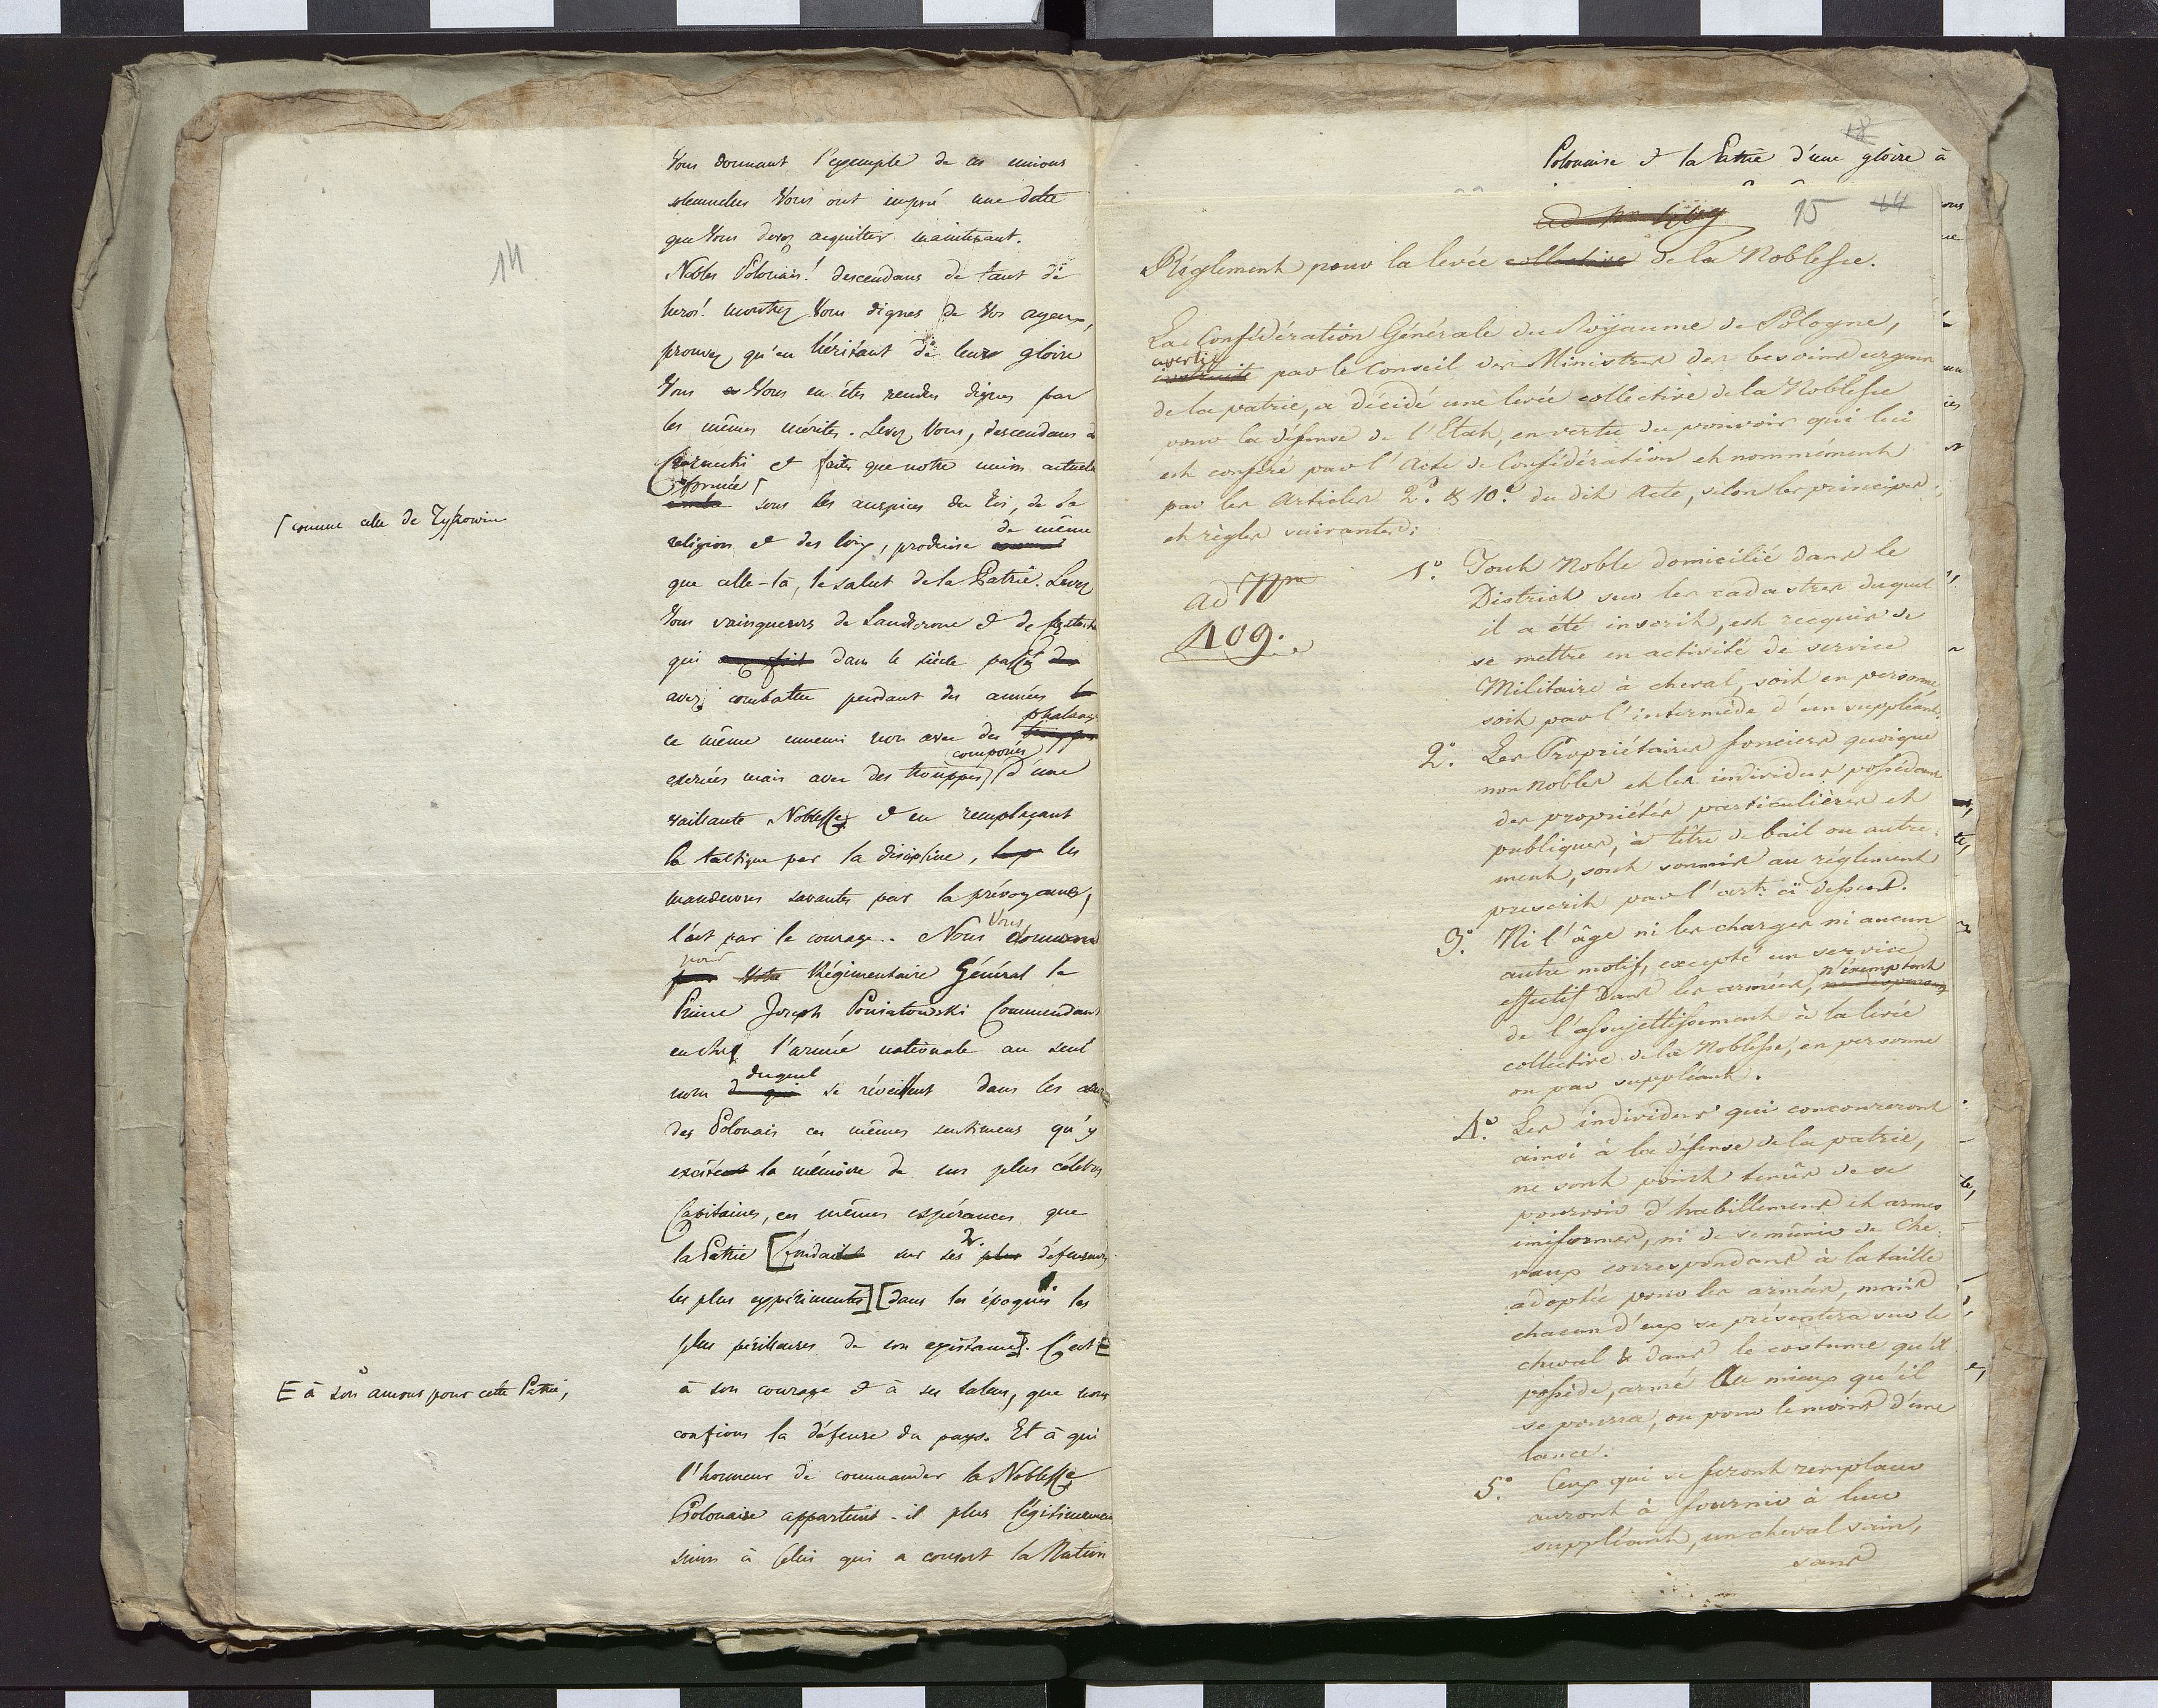 14
Vous donnant l'exemple de ces unions
solemnelles Vous ont imposé une dette
que Vous devez acquitter maintenant.
Nobles Polonais! descendans de tant de
heros! montrez Vous dignes de Vos ayeux,
prouvez qu'en héritant de leur gloire
Vous Vous en êtes rendus dignes par
les mêmes mérites. Levez Vous, descendans de
Czarnecki et faites que notre union actuelle
formée ⌈
⌈ comme celle de Tyszowin
sous les auspices du Roi, de la
de même
religion et des loix, produise comme
que celle-là, le salut de la Patrie. Levez
Vous vainqueurs de Landscrone et de
qui dans le siècle passé
avez combattu pendant des années
phalanges
ce même ennemi non avec des trouppes
composées
exercées mais avec des trouppes d'une
vaillante Noblesse et en remplaçant
la tactique par la discipline, les
manoeuvres savantes par la prévoyance,
Vous
l'art par le courage. Nous donnons
pour
pour Votre Régimentaire Général le
Prince Joseph Poniatowski Commendant
en chef l'armée nationale au seul
duquel
nom de qui se réveillent dans les coeurs
des Polonais ces mêmes sentimens qu'y
excitent la mémoire de nos plus célèbres
Capitaines, ces mêmes espérances que
2.
la Patrie [fondait sur ses plus défenseurs
les plus expérimentés] [dans les époques les
plus périlleuses de son existance]. C'est E
E à son amour pour cette Patrie,
à son courage et à ses talens, que nous
confions la défense du pays. Et à qui
l'honneur de commander la Noblesse
Polonaise appartient-il plus légitimement
sinon à Celui qui a couvert la Nation
18
Polonaise et la Patrie d'une gloire à
15 14
Réglement pour la levée collective de la Noblesse.
La Confédération Générale du Royaume de Pologne,
avertie
instruite par le Conseil des Ministres des besoins urgens
de la patrie, a décidé une levée collective de la Noblesse
pour la défense de l'Etat, en vertu du pouvoir qui lui
est conféré par l'Acte de Confédération et nommément
par les Articles 2d. & 10e. du dit Acte, selon les principes
et règles suivantes:
ad Nrm
409.
1o. Tout Noble domicilié dans le
District sur les cadastres duquel
il a été inscrit, est requis de
se mettre en activité de service
Militaire à cheval, soit en personne,
soit par l'intermède d'un suppléant.
2o. Les Propriétaires fonciers quoique
non nobles et les individus possédant
des propriétés particulières et
publiques, à titre de bail ou autre-
ment, sont soumis au réglement
prescrit par l'art: ci dessus.
3o. Ni l'âge ni les charges ni aucun
autre motif, excepté un service
n'exemptent
effectif dans les armées,
de l'assujettissement à la levée
collective de la Noblesse, en personne
ou par suppléant.
4o. Les individus qui concoureront
ainsi à la défense de la patrie,
ne sont point tenus de se
pourvoir d'habillemens et armes
uniformes, ni de se munir de Che-
vaux correspondant à la taille
adoptée pour les armées, mais
chacun d'eux se présentera sur le
cheval & dans le costume qu'il
possède, armé au mieux qu'il
se pourra, ou pour le moins d'une
lance.
5o. Ceux qui se feront remplacer
auront à fournir à leur
suppléant, un cheval sain,
sans